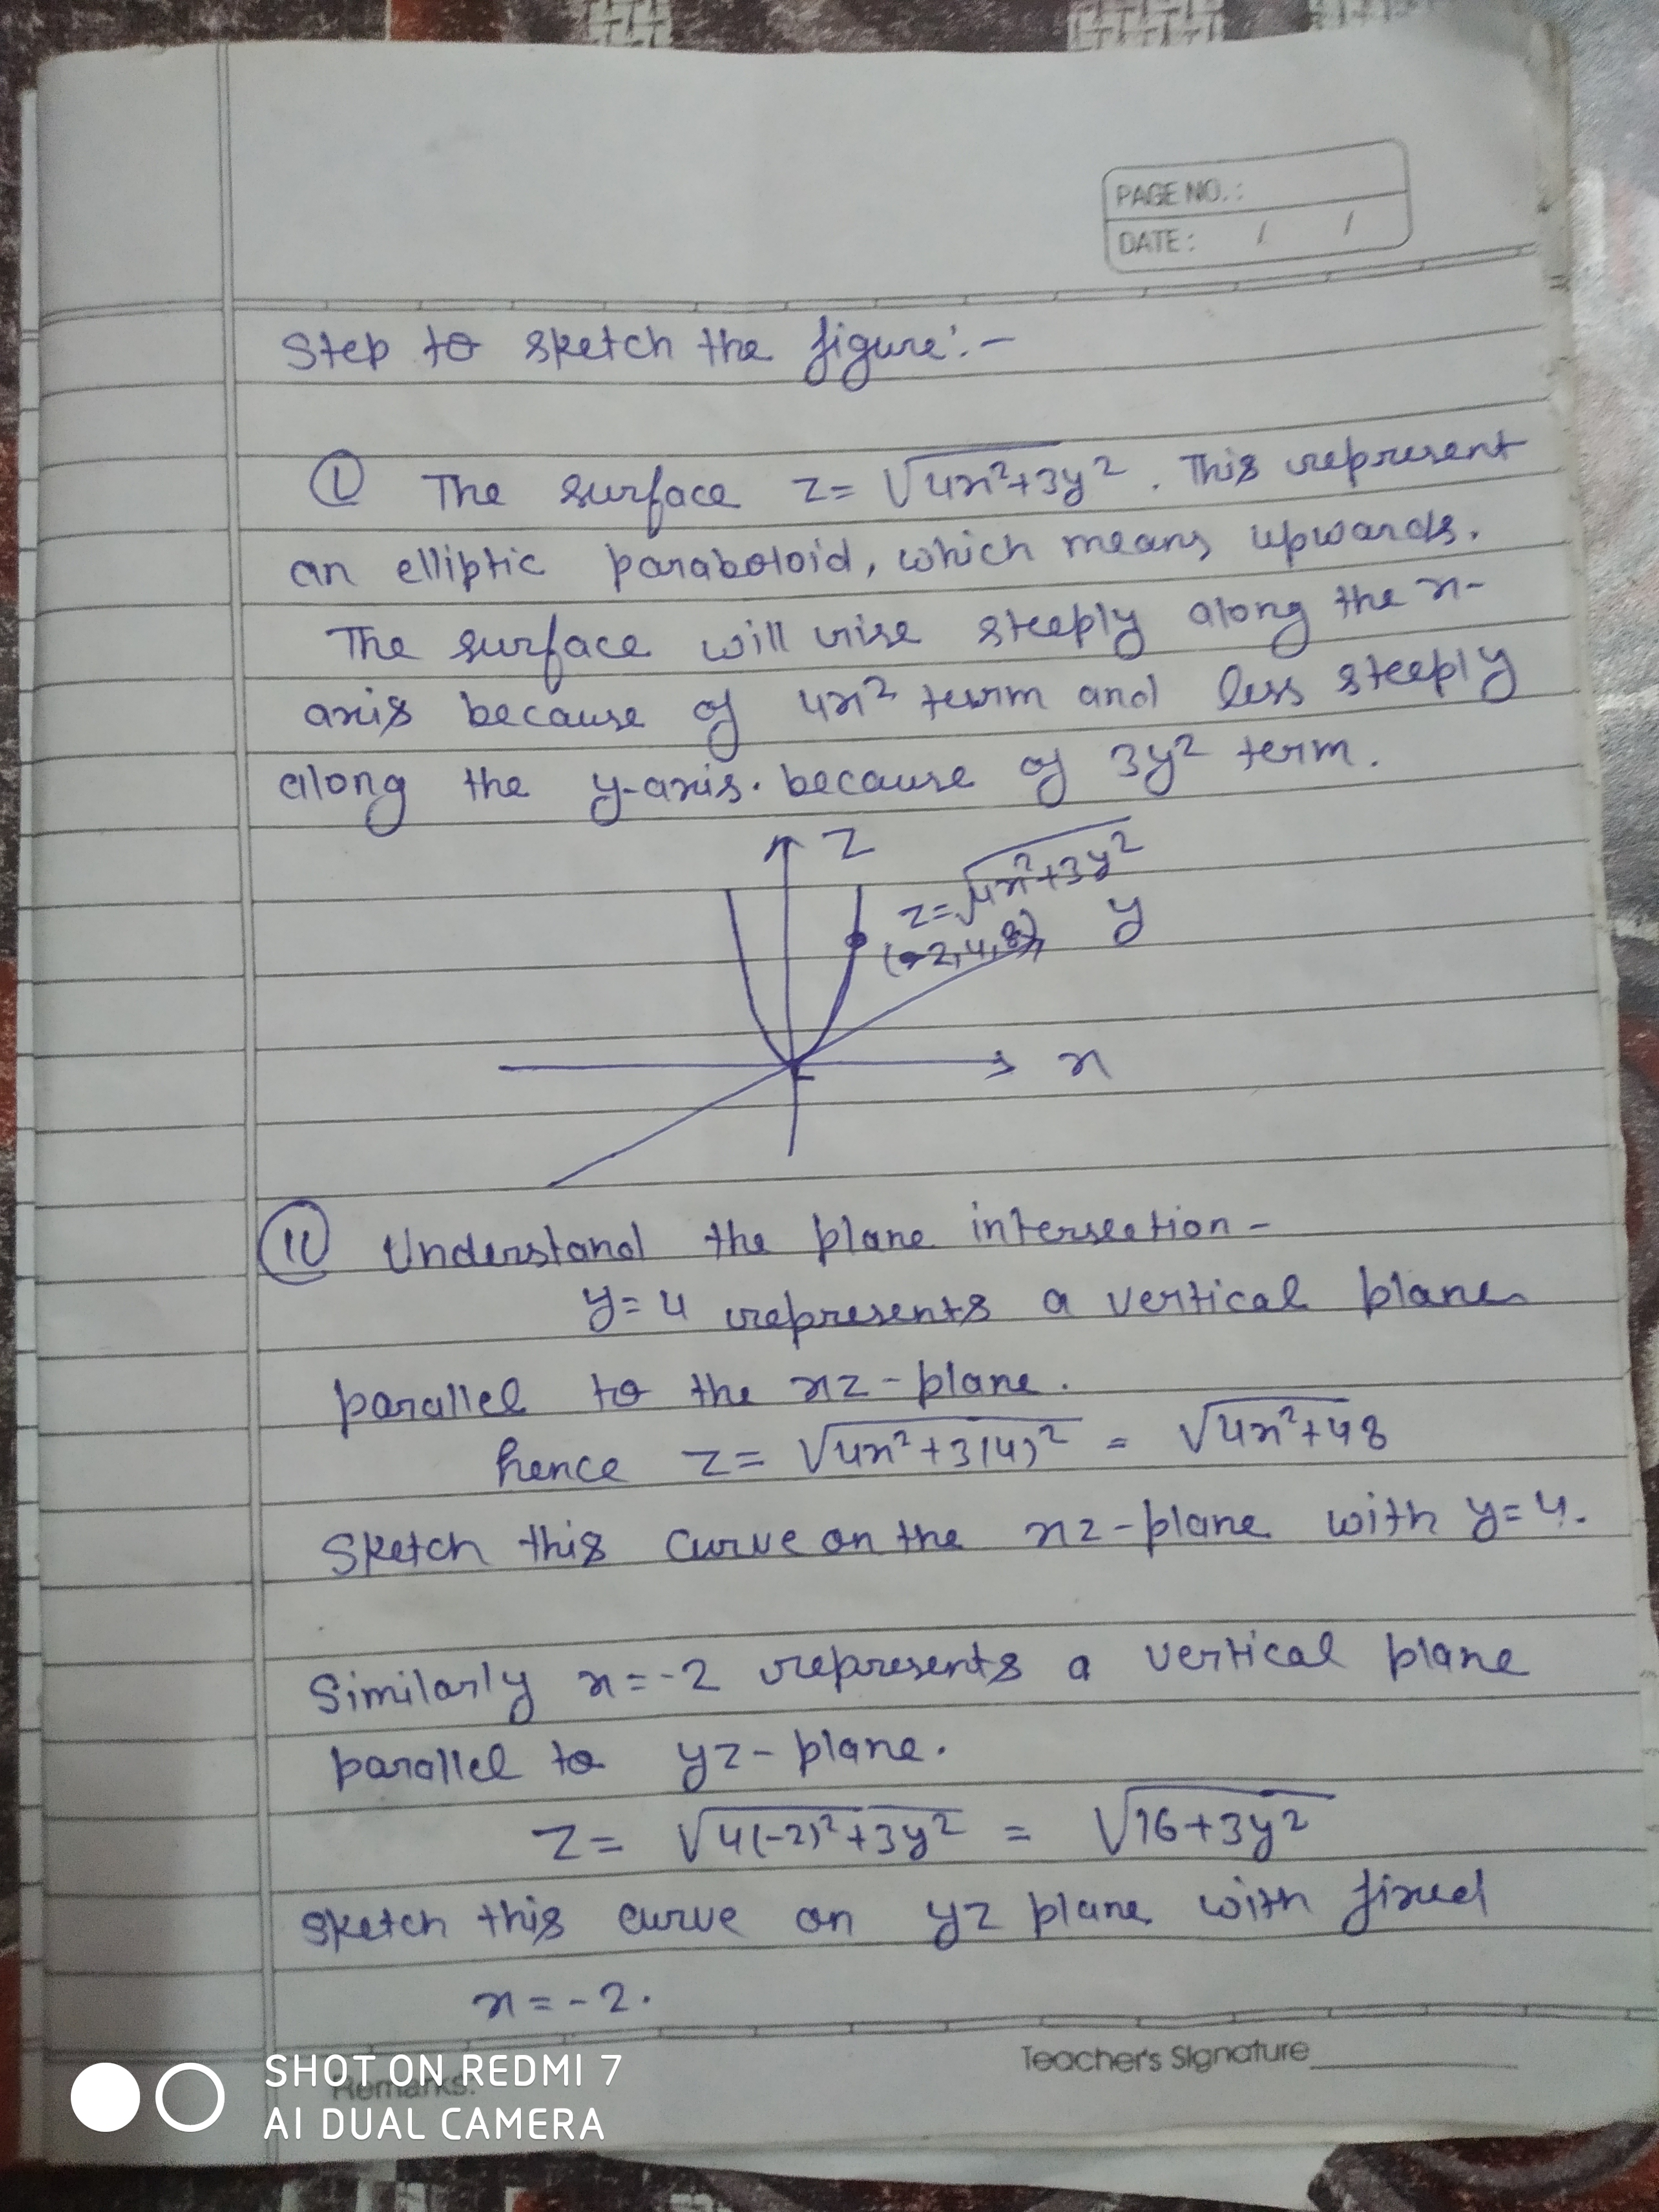 PAGE NO.:
DATE: / /
Step to sketch the figure:-
① The surface z = √4x²+3y². This represent
an elliptic paraboloid, which means upwards.
The surface will rise steeply along the x-
axis because of 4x² term and less steeply
along the y-axis. because of 3y² term.
z
z=√4x²+3y²
y
(-2,4,8)
x
⑪ Understand the plane intersection -
y=4 represents a vertical plane
parallel to the xz-plane.
hence z = √4x²+3(4)² = √4x²+48
Sketch this curve on the xz-plane with y=4.
Similarly x=-2 represents a vertical plane
parallel to yz-plane.
z = √4(-2)²+3y² = √16+3y²
sketch this curve on yz plane with fixed
x=-2.
Teacher's Signature
Remarks:
SHOT ON REDMI 7
AI DUAL CAMERA